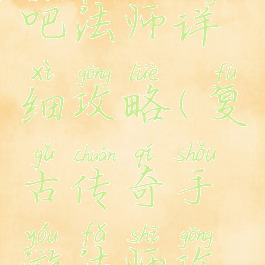 吧法师详
xì gōng lüè fù
细攻略(复
gǔ chuán qí shǒu
古传奇手
yóu fǎ shī gōng
游法师攻